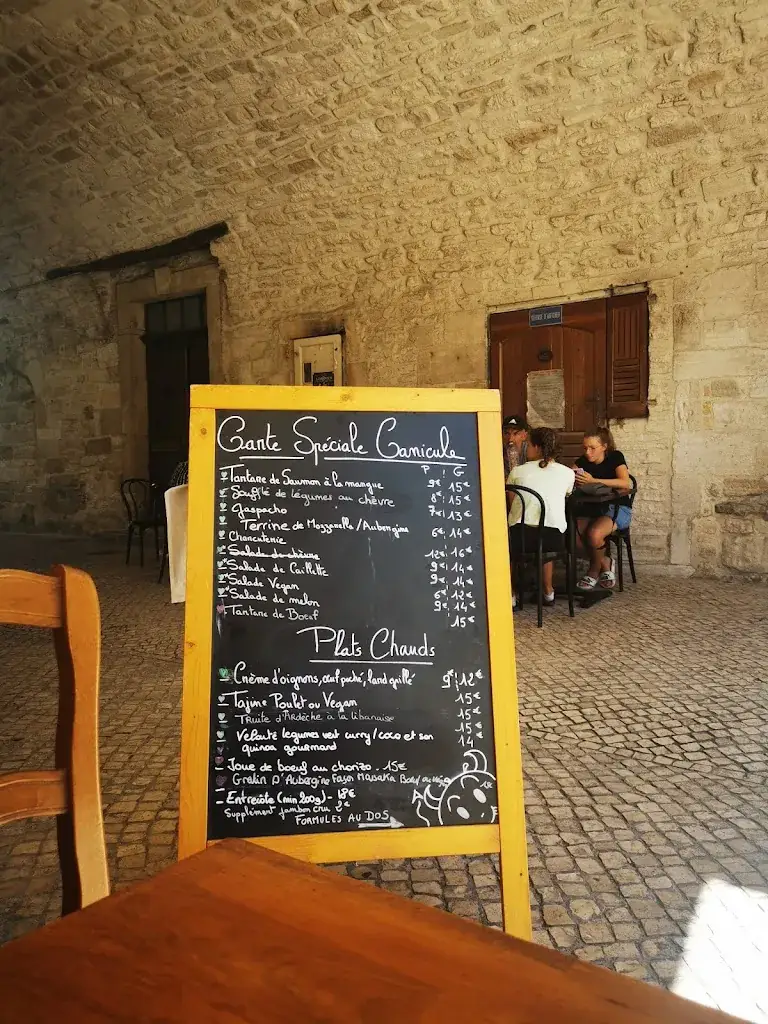 Carte Spéciale Canicule
P G
- Tartare de Saumon à la mangue 9€ 15€
- Soufflé de légumes au chèvre 8€ 15€
- Gaspacho 7€ 13€
Terrine de Mozzarella/Aubergine 6€ 14€
- Charcuterie
- Salade de chèvre 12€ 16€
- Salade de Caillette 9€ 14€
- Salade Vegan 9€ 14€
- Salade de melon 6€ 12€
- Tartare de Boeuf 9€ 14€
15€
Plats Chauds
- Crème d'oignons, œuf poché, lard grillé 9€ 12€
- Tajine Poulet ou Vegan 15€
- Truite d'Ardèche à la libanaise 15€
- Velouté légumes vert curry/coco et son 15€
quinoa gourmand 14
- Joue de boeuf au chorizo - 15€
- Gratin d'Aubergine Façon Massaka Boeuf ou
- Entrecôte (min 200g) - 18€
Supplément jambon cru 2€
FORMULES AU DOS